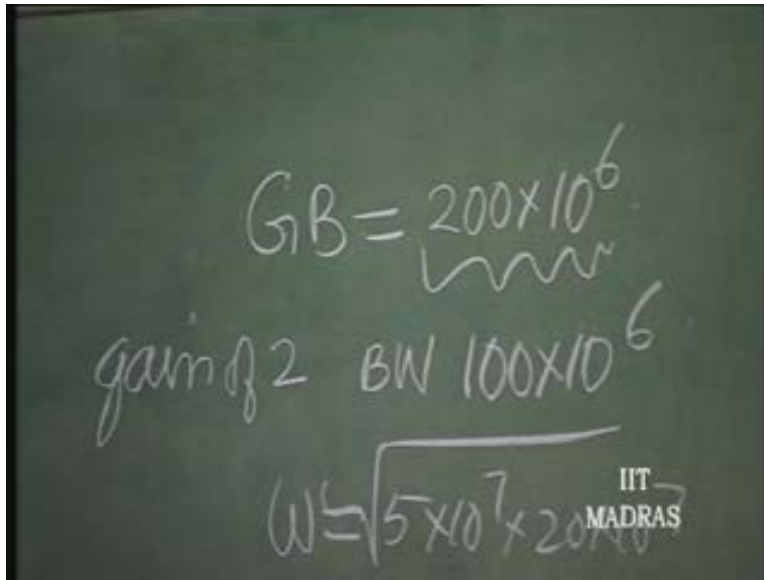 GB = 200×10⁶
gain of 2 BW 100×10⁶
W = √5×10⁷×20×10⁷
IIT
MADRAS